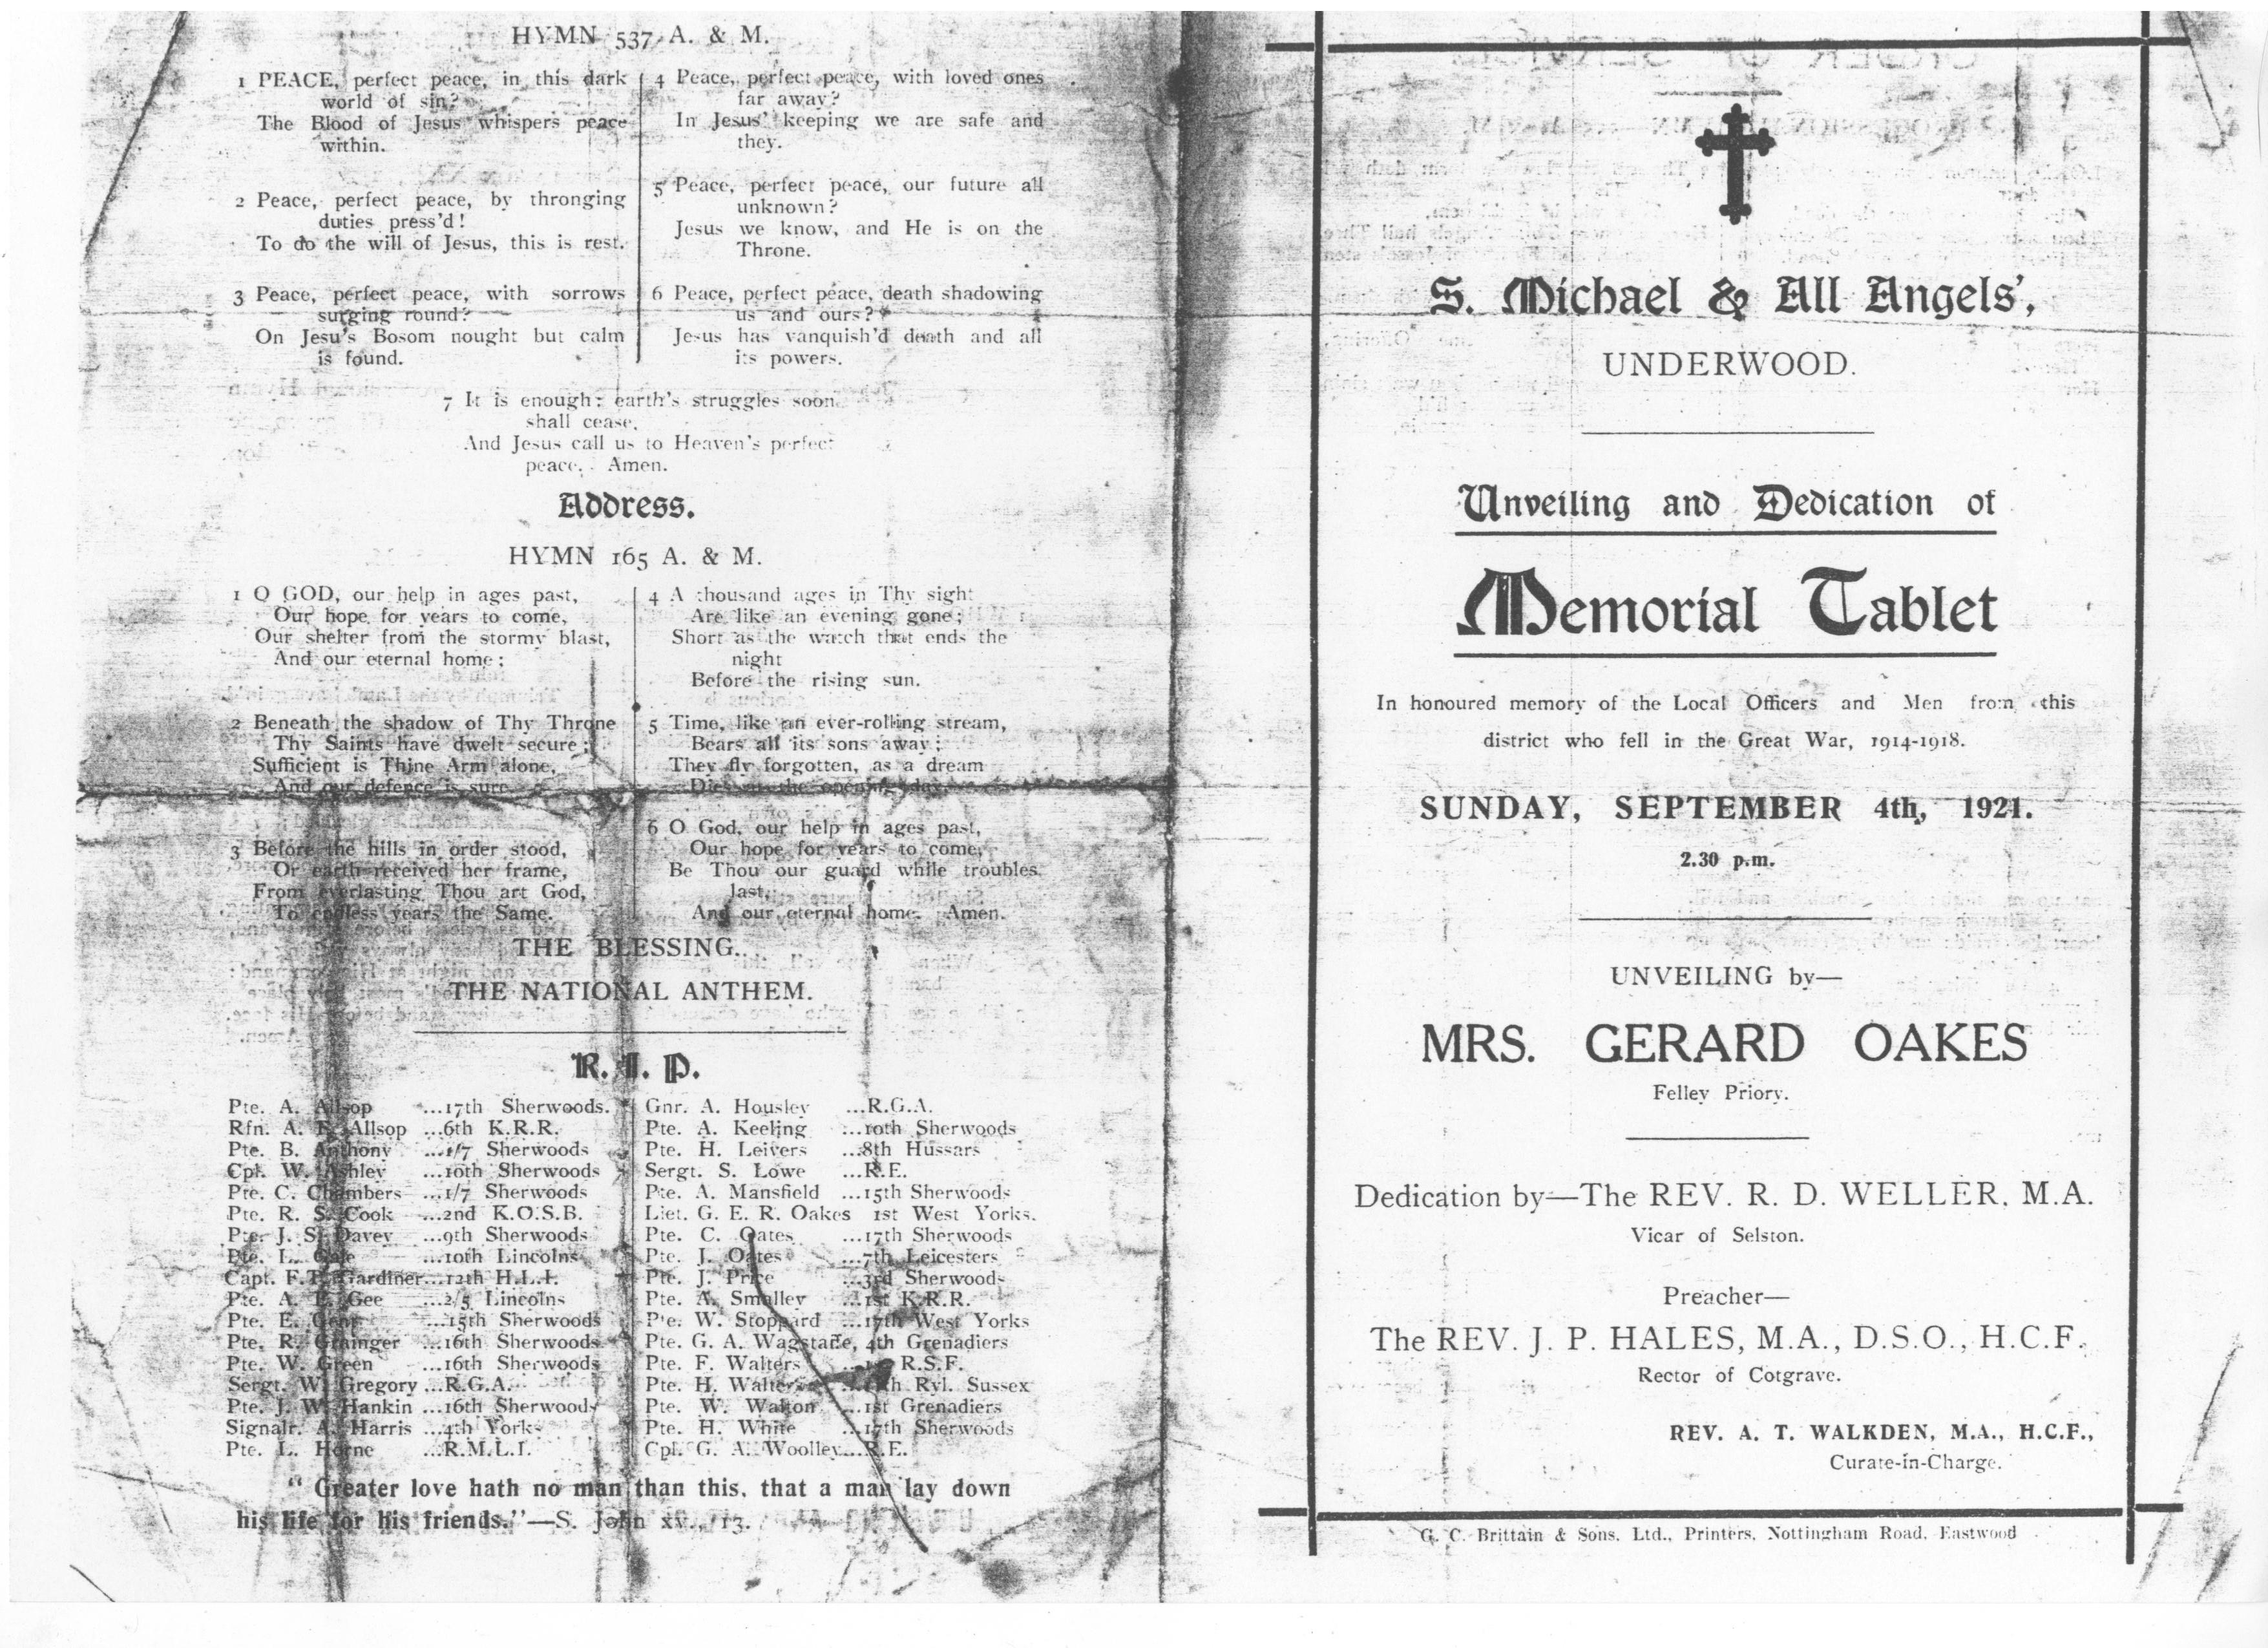 HYMN 537 A. & M.
1 PEACE, perfect peace, in this dark
world of sin?
The Blood of Jesus whispers peace
within.
2 Peace, perfect peace, by thronging
duties press'd!
To do the will of Jesus, this is rest.
3 Peace, perfect peace, with sorrows
surging round?
On Jesu's Bosom nought but calm
is found.
4 Peace, perfect peace, with loved ones
far away?
In Jesus' keeping we are safe and
they.
5 Peace, perfect peace, our future all
unknown?
Jesus we know, and He is on the
Throne.
6 Peace, perfect peace, death shadowing
us and ours?
Jesus has vanquish'd death and all
its powers.
7 It is enough: earth's struggles soon
shall cease,
And Jesus call us to Heaven's perfect
peace. Amen.
Address.
HYMN 165 A. & M.
1 O GOD, our help in ages past,
Our hope for years to come,
Our shelter from the stormy blast,
And our eternal home;
2 Beneath the shadow of Thy Throne
Thy Saints have dwelt secure;
Sufficient is Thine Arm alone,
And our defence is sure.
3 Before the hills in order stood,
Or earth received her frame,
From everlasting Thou art God,
To endless years the Same.
4 A thousand ages in Thy sight
Are like an evening gone;
Short as the watch that ends the
night
Before the rising sun.
5 Time, like an ever-rolling stream,
Bears all its sons away;
They fly forgotten, as a dream
Dies at the opening day.
6 O God, our help in ages past,
Our hope for years to come,
Be Thou our guard while troubles
last,
And our eternal home. Amen.
THE BLESSING.
THE NATIONAL ANTHEM.
R. I. P.
Pte. A. Allsop ...17th Sherwoods.
Rfn. A. Allsop ...6th K.R.R.
Pte. B. Anthony ...1/7 Sherwoods
Cpl. W. Ashley ...10th Sherwoods
Pte. C. Chambers ...1/7 Sherwoods
Pte. R. S. Cook ...2nd K.O.S.B.
Pte. J. S. Davey ...9th Sherwoods
Pte. L. ...10th Lincolns
Capt. F. T. Gardiner...12th H.L.I.
Pte. A. Gee ...2/5 Lincolns
Pte. E. ...15th Sherwoods
Pte. R. Grainger ...16th Sherwoods
Pte. W. Green ...16th Sherwoods
Sergt. W. Gregory ...R.G.A.
Pte. J. W. Hankin ...16th Sherwoods
Signalr. A. Harris ...4th Yorks
Pte. L. Horne ...R.M.L.I.
Gnr. A. Housley ...R.G.A.
Pte. A. Keeling ...10th Sherwoods
Pte. H. Leivers ...8th Hussars
Sergt. S. Lowe ...R.E.
Pte. A. Mansfield ...15th Sherwoods
Liet. G. E. R. Oakes 1st West Yorks.
Pte. C. Oates ...17th Sherwoods
Pte. J. Oates ...7th Leicesters
Pte. J. Price ...3rd Sherwoods
Pte. A. Smalley ...1st K.R.R.
Pte. W. Stoppard ...17th West Yorks
Pte. G. A. Wagstaffe, 4th Grenadiers
Pte. F. Walters R.S.F.
Pte. H. Walters Ryl. Sussex
Pte. W. Walton ...1st Grenadiers
Pte. H. White ...17th Sherwoods
Cpl. G. A. Woolley...R.E.
"Greater love hath no man than this, that a man lay down
his life for his friends."—S. John xv., 13.
S. Michael & All Angels',
UNDERWOOD.
Unveiling and Dedication of
Memorial Tablet
In honoured memory of the Local Officers and Men from this
district who fell in the Great War, 1914-1918.
SUNDAY, SEPTEMBER 4th, 1921.
2.30 p.m.
UNVEILING by—
MRS. GERARD OAKES
Felley Priory.
Dedication by—The REV. R. D. WELLER, M.A.
Vicar of Selston.
Preacher—
The REV. J. P. HALES, M.A., D.S.O., H.C.F.
Rector of Cotgrave.
REV. A. T. WALKDEN, M.A., H.C.F.,
Curate-in-Charge.
G. C. Brittain & Sons, Ltd., Printers, Nottingham Road, Eastwood